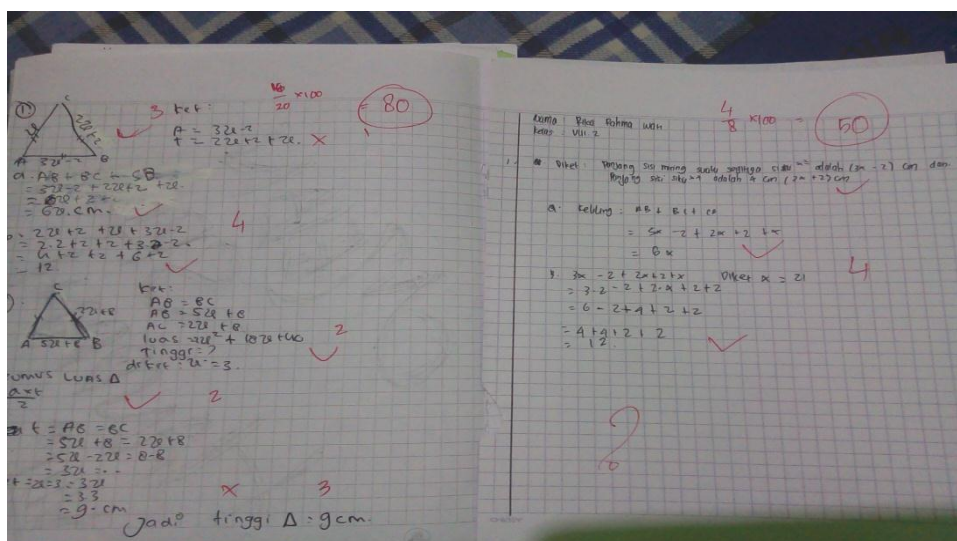 ①
C
2x+2
A 3x-2 B
3 Ket:
16/20 ×100 = 80
A = 3x-2
t = 2x+2+x. ×
a. AB + BC +
= 3x-2 + 2x+2 + x.
= 6x.cm.
4
2x+2 + x + 3x-2
= 2.2+2+2+3.2-2.
= 4+2+2+6+2
= 12.
C
2x+8
A 5x+8 B
Ket:
AB = BC
AB = 5x + 8
AC = 2x + 8
2
Tinggi = ?
x = 3.
Rumus Luas Δ
axt
2
2
t = AB = BC
= 5x +8 = 2x+8
= 5x - 2x = 8-8
= 3x = ..
t = x=3 = 3x
= 33
= 9.cm
× 3
Jadi tinggi Δ = 9cm.
Nama : Rahma
Kelas : VIII.2
4/8 ×100 = 50
1. Diket : Panjang sisi miring suatu segitiga siku² adalah (3x - 2) cm dan
Panjang sisi adalah cm (2x+2) cm
a. Keliling : AB + BC + CA
= 5x -2 + 2x +2 +x
= 6x
4
3x -2 + 2x+2 +x Diket x = 2
= 3.2 -2 + 2.x +2 +2
= 6 - 2 + 4 + 2 +2
= 4 + 4 + 2 + 2
= 12.